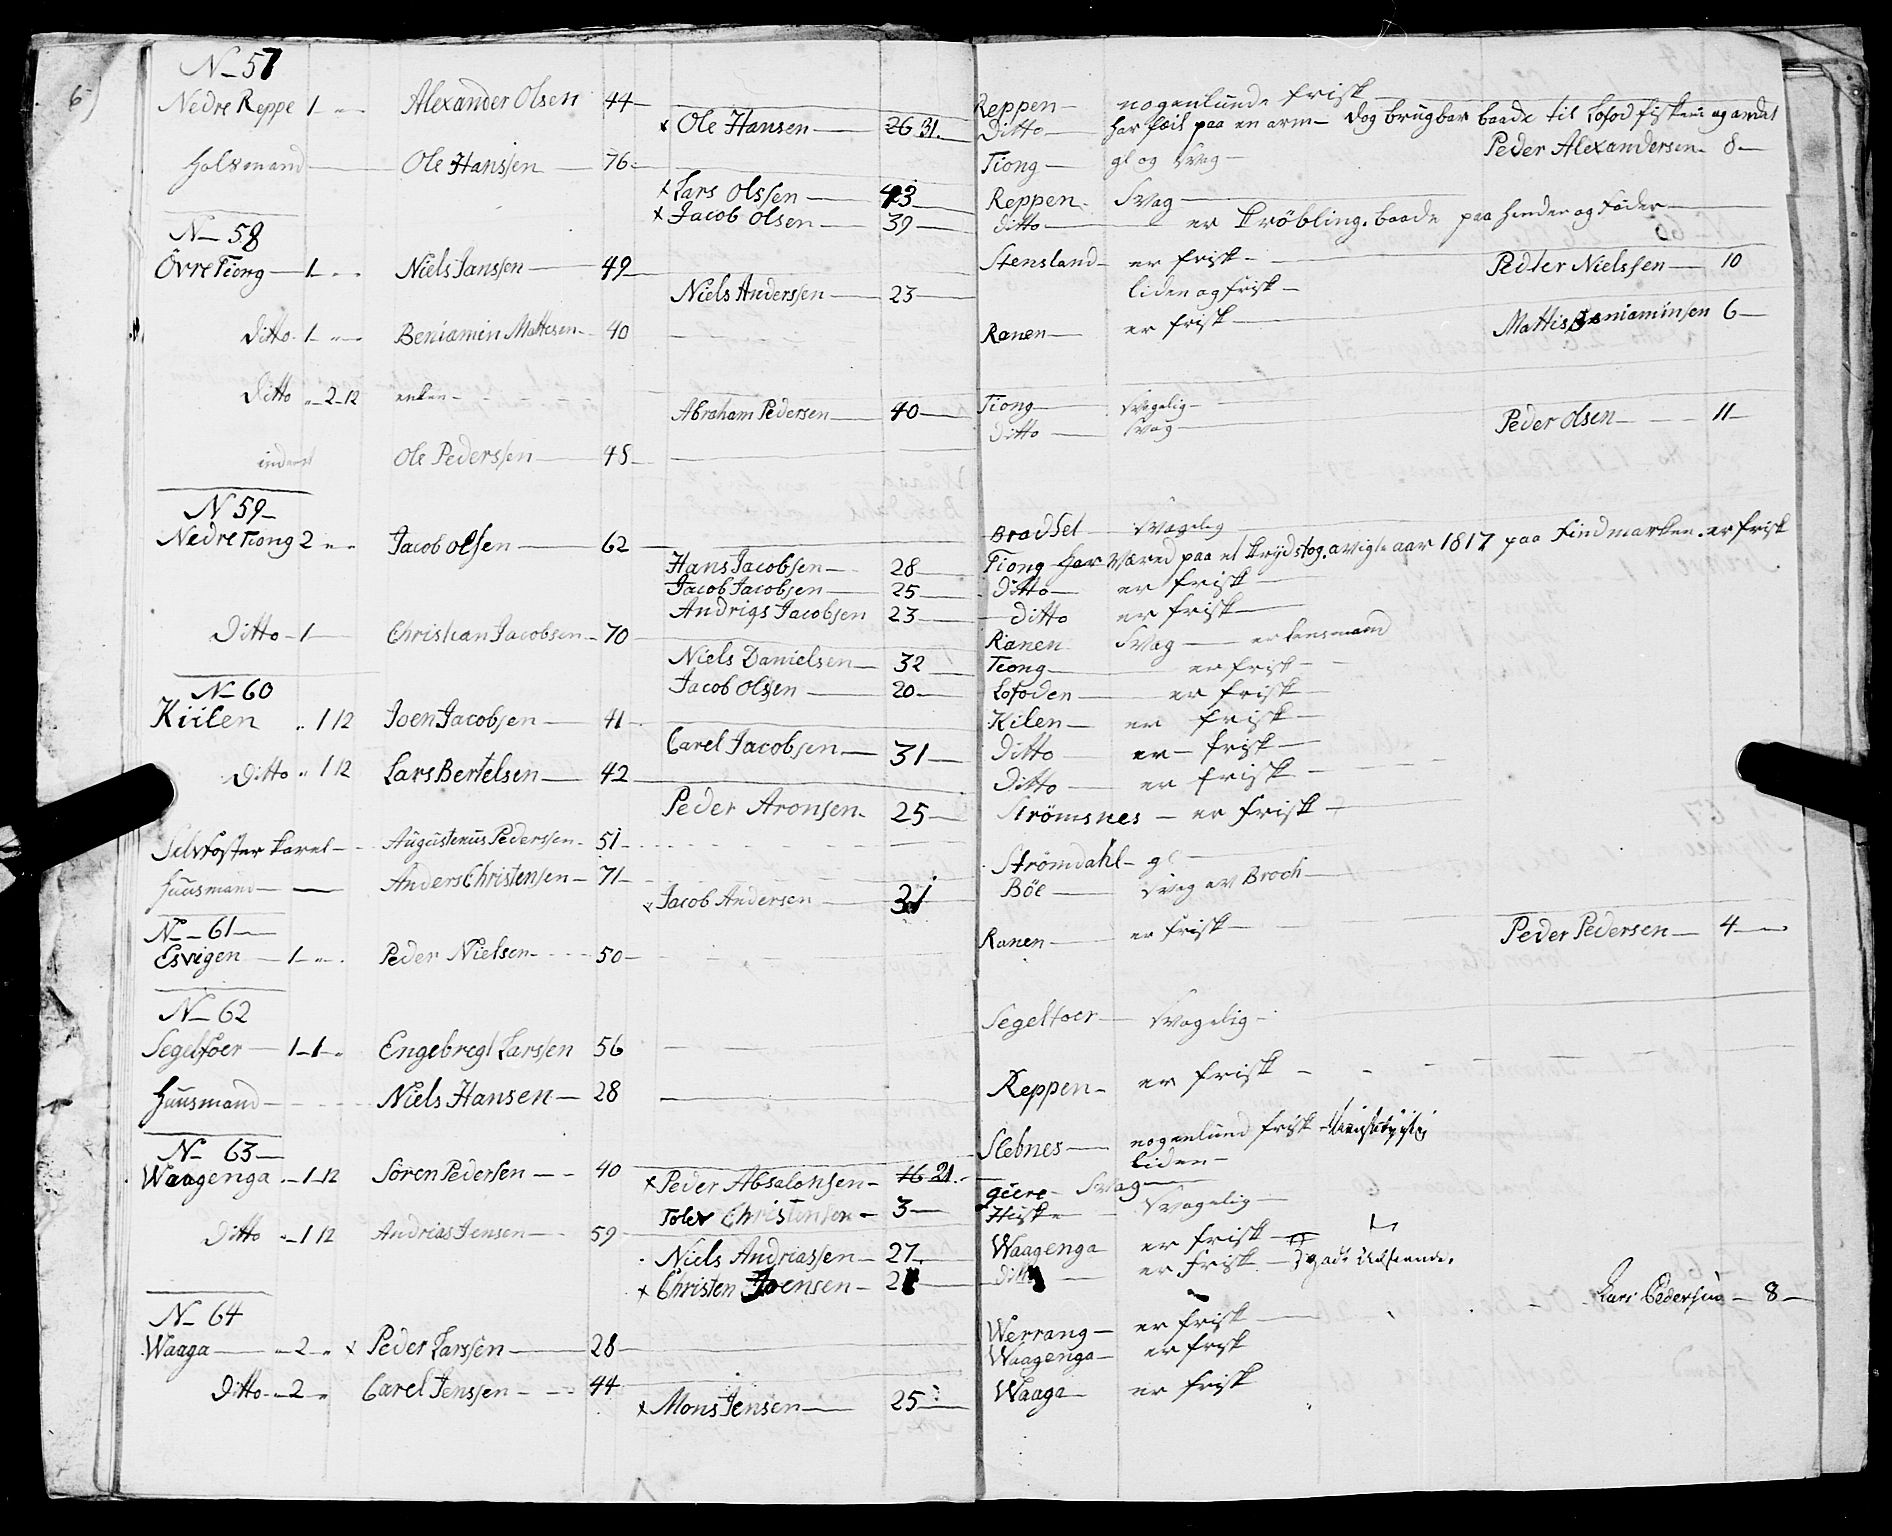 6
N 57
Nedre Reppe 1 Alexander Olsen 44 Reppen nogenlunde frisk
x Ole Hansen 26 31. Ditto har feil paa en arm dog brugbar baade til Lofod fiskerie og andet
Peder Alexandersen 8
Ole Hanssen 76 Tiong gl og Svag
x Lars Olssen 43 Reppen Svag
x Jacob Olsen 39 ditto er Krøbling. baade paa Hender og Føder
N 58
Övre Tiong 1 Niels Janssen 49 Stensland er frisk Peder Nielssen 10
Niels Anderssen 23 liden og frisk
Ditto 1 Beniamin Mattesen 40 Ranen er frisk Mattis Beniaminsen 6
Ditto 2 12 enken
Abraham Pedersen 40 Tiong svagelig
inderst Ole Pederssen 45 Ditto Svag Peder Olsen 11
N 59
Nedre Tiong 2 Jacob Olsen 62 Bradset svagelig
Hans Jacobsen 28 Tiong Har Wæred paa et Krydstog. avigte aar 1817 paa Findmarken. er frisk
Jacob Jacobsen 25 Ditto er frisk
Andrigs Jacobsen 23 ditto er frisk
Ditto 1 Christian Jacobsen 70 Ranen Svag er Lensmand
Niels Danielsen 32 Tiong er frisk
Jacob Olsen 20 Lofoden er frisk
N 60
Kiilen 1 12 Joen Jacobsen 41 Kilen er frisk
Carel Jacobsen 31 Ditto er frisk
Ditto 1 12 Lars Bertelsen 42 Ditto er frisk
Peder Aronsen 25 Strömsnes er frisk
Selvfoster karel Augustenus Pederssen 51 Strömdahl gl
Huusmand Anders Christensen 71 Böe svag av Broch
x Jacob Andersen 31
N 61
Esvigen 1 Peder Nielsen 50 Ranen er frisk Peder Pedersen 4
N 62
Segelfoer 1 1 Engebregt Larssen 56 Segelfoer svagelig
Huusmand Niels Hansen 28 Reppen er frisk
N 63
Waagenga 1 12 Sören Pedersen 40 Slebnes nogenlund frisk
liden
x Peder Absalonsen 16 21. giere Svag
Toler Christensen 3 Hiske svagelig
Ditto 1 12 Andrias Jensen 59 Waagenga er frisk
Niels Andriassen 27 Ditto er frisk
x Christen Joensen 21
N 64
Lars Pedersen 8
Waaga 2 x Peder Larssen 28 Werrang er frisk
Waagenga er frisk
Ditto 2 Carel Jenssen 44 Waaga er frisk
x Mons Jensen 25